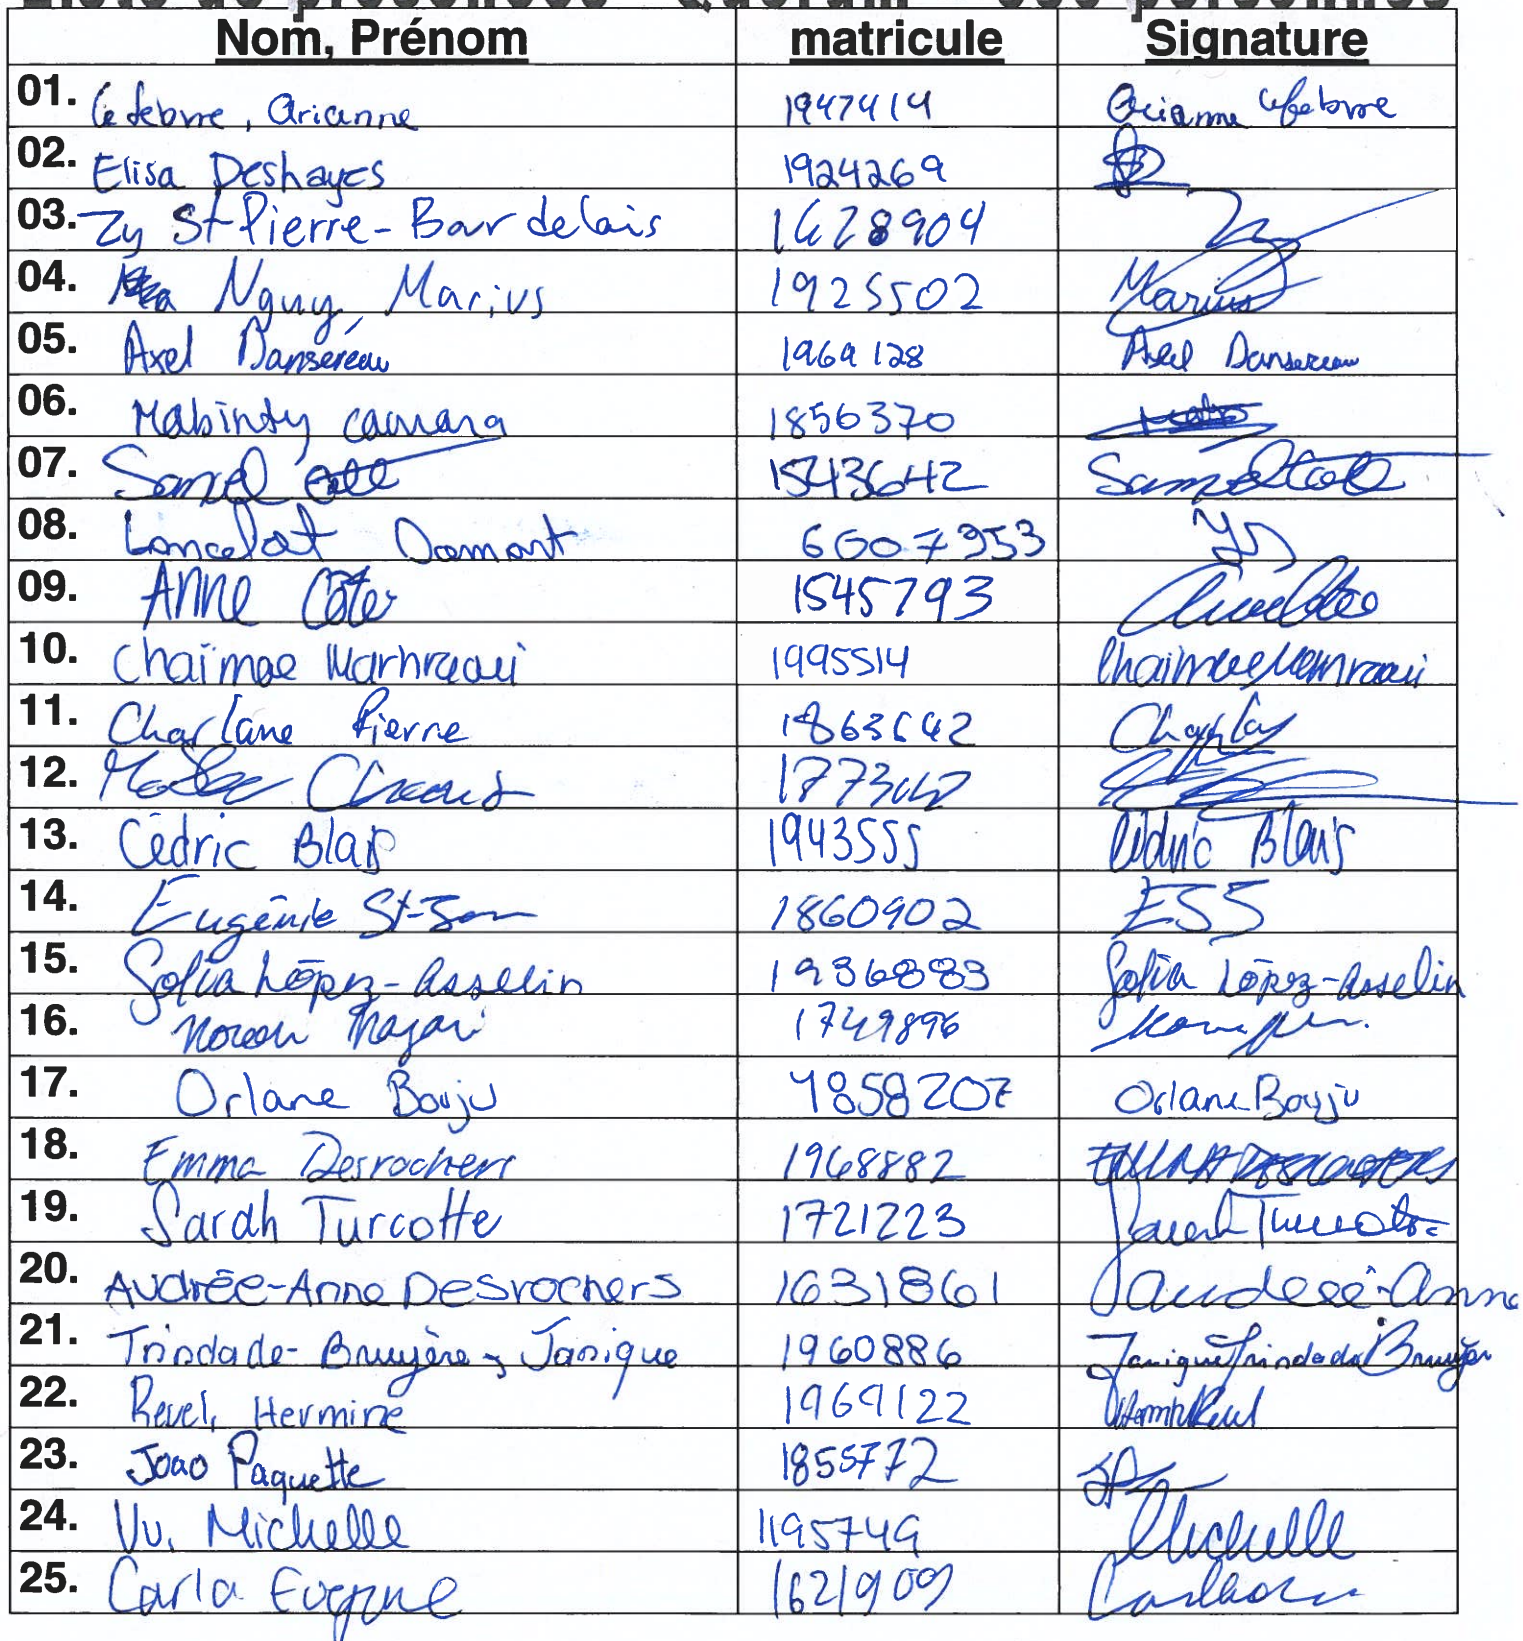 Liste de présences - Quorum
Nom, Prénom matricule Signature
01. Lefebvre, Arianne 1947414 Arianne Lefebvre
02. Elisa Deshayes 1924269
03. Zy St-Pierre-Bourdelais 1628904
04. Nguy, Marius 1925502 Marius
05. Axel Dansereau 1969128 Axel Dansereau
06. Mabinty camara 1856370
07. 1543642
08. Lancelot Damant 6007953
09. ANNE Côté 1545793 Anne Côté
10. Chaïmae Marhraoui 1995514 Chaimae Marhraoui
11. Charlane Pierre 1863642
12.
13. Cédric Blais 1943555 Cédric Blais
14. Eugénie St-Jean 1860902 ESJ
15. Sofia López-Asselin 1936883 Sofia López-Asselin
16. 1749896
17. Orlane Bouju 1858207 Orlane Bouju
18. Emma Desrochers 1968882 EMMA DESROCHERS
19. Sarah Turcotte 1721223 Sarah Turcotte
20. Audrée-Anne Desrochers 1631861 Audrée-Anne
21. Trindade-Bruyère, Janique 1960886 Janique Trindade Bruyère
22. Revel, Hermine 1969122 Hermine Revel
23. Joao Paquette 1855772 JP
24. Vu, Michelle 1195749 Michelle
25. Carla Eugene 1621909